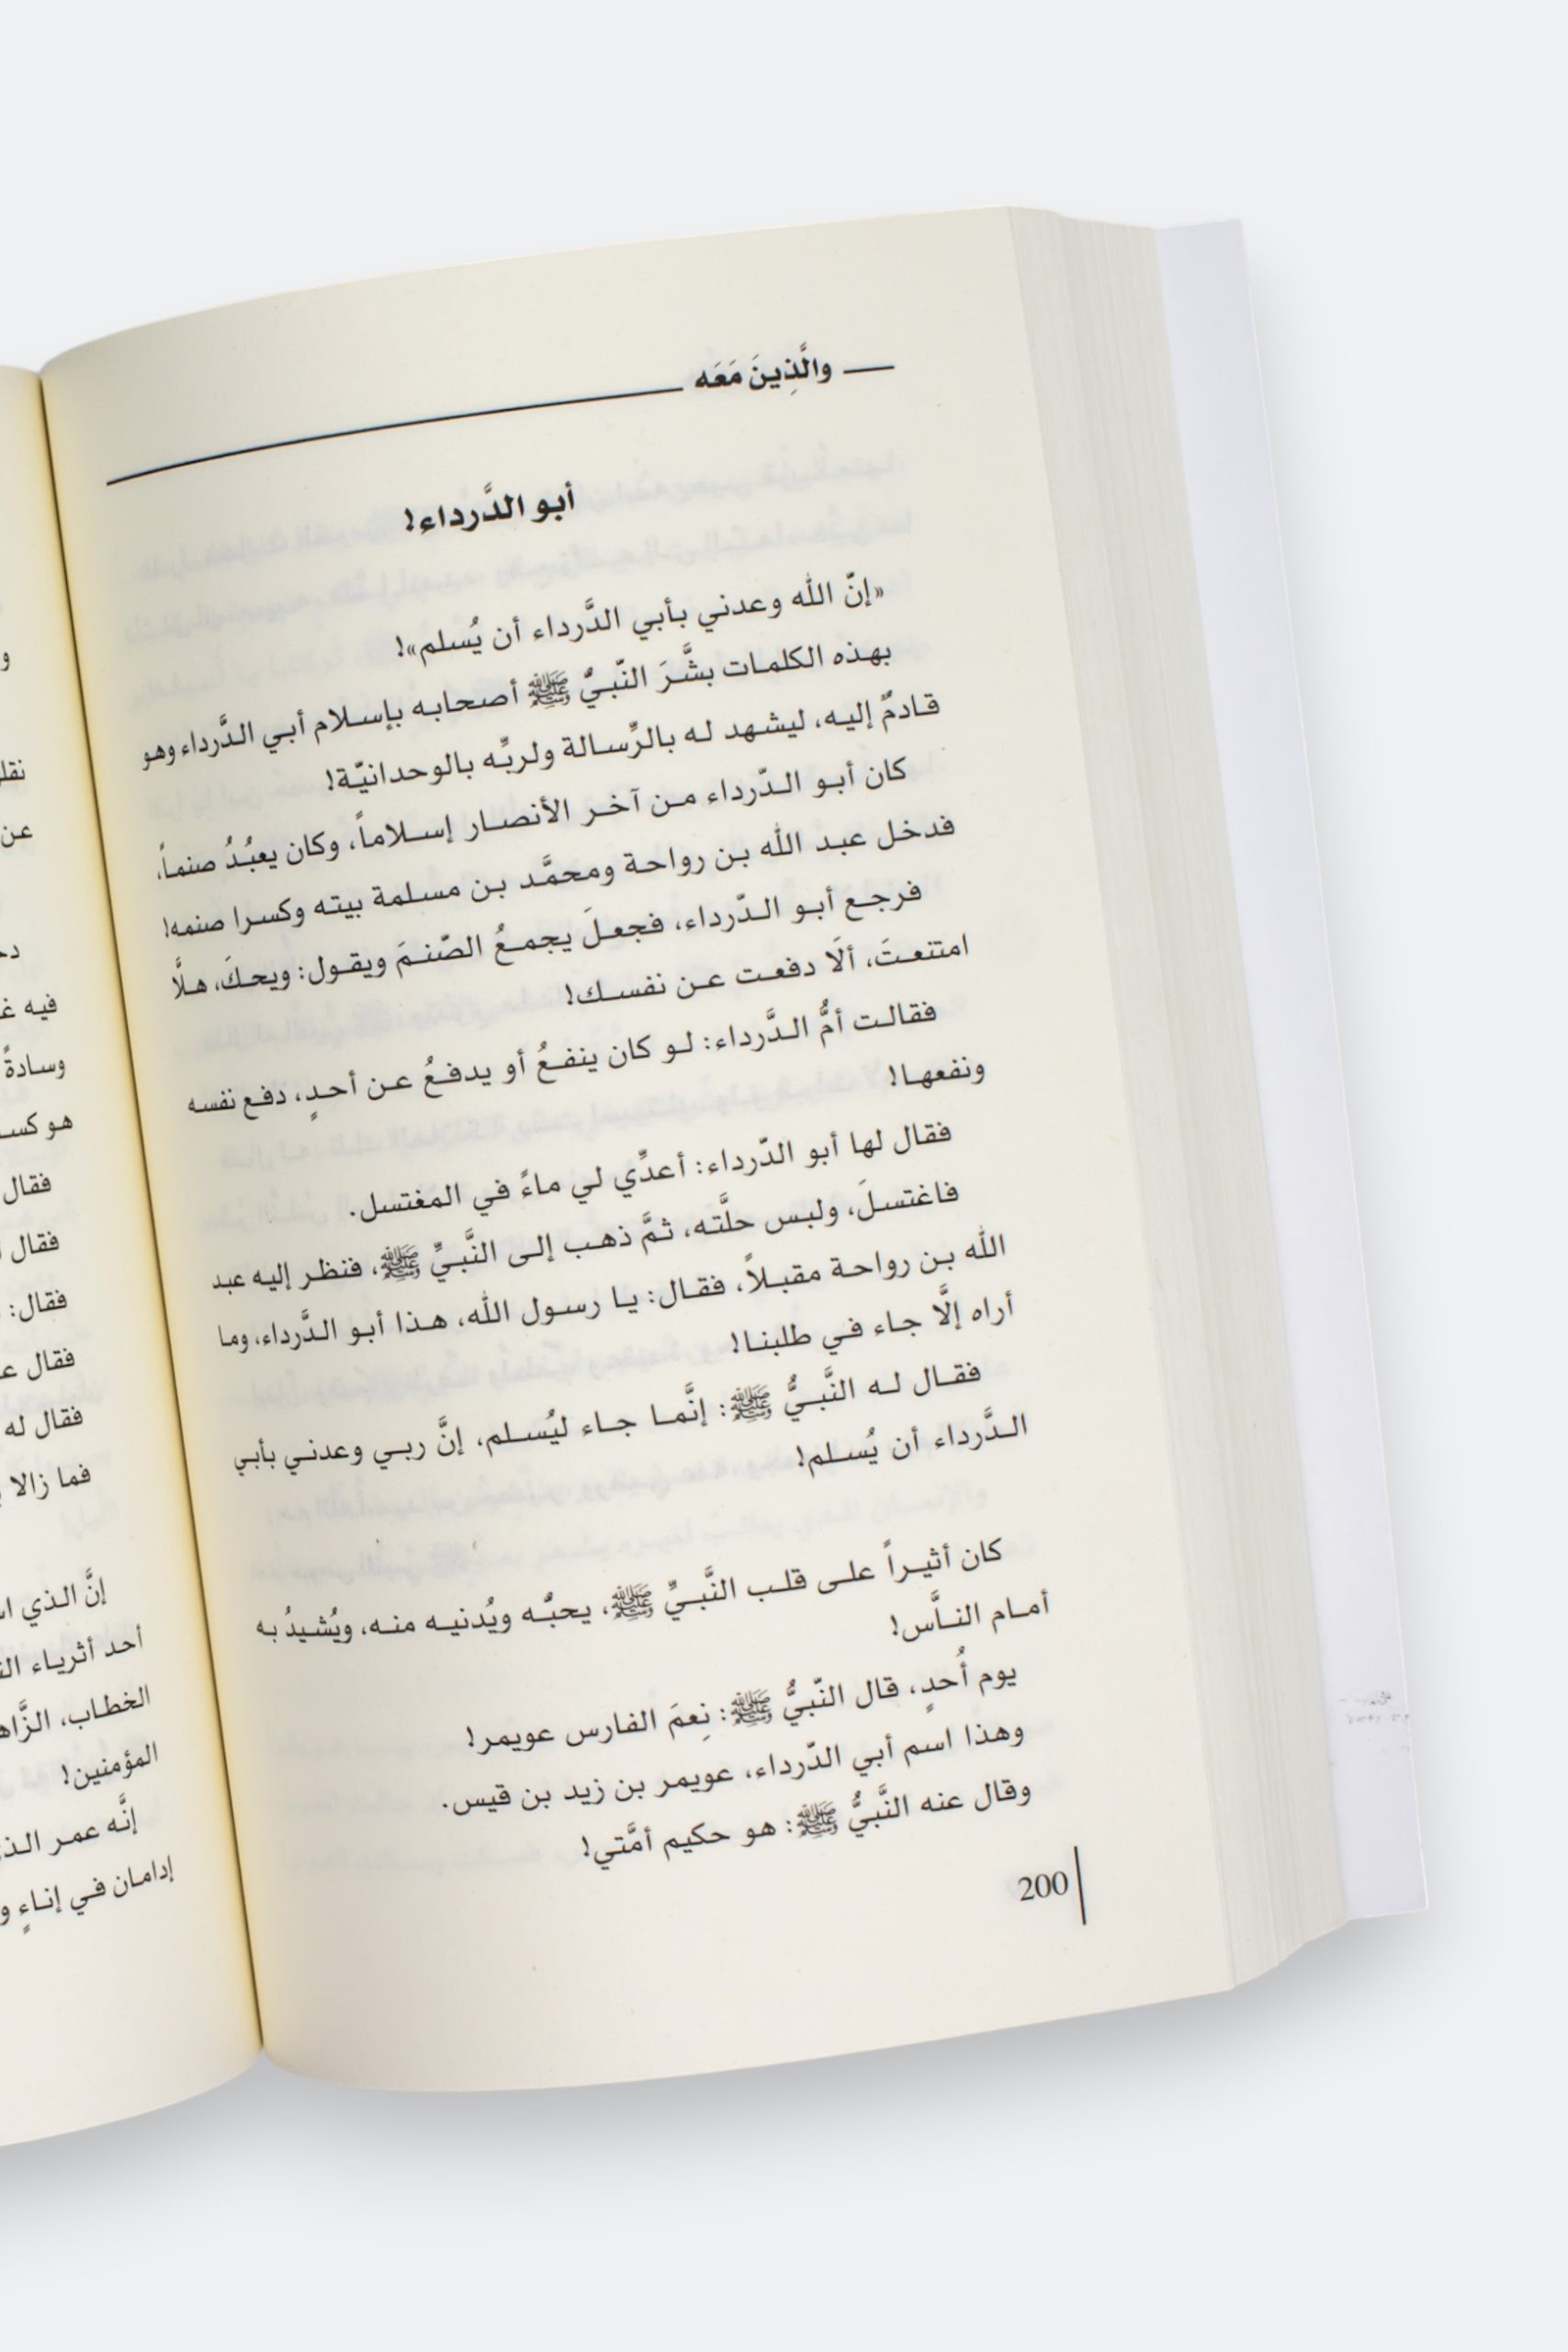 والَّذِينَ مَعَه
أبو الدَّرداء!
«إنّ الله وعدني بأبي الدَّرداء أن يُسلم»!
بهذه الكلمات بشَّرَ النّبيُّ ﷺ أصحابه بإسلام أبي الدَّرداء وهو
قادمٌ إليه، ليشهد له بالرِّسالة ولربِّه بالوحدانيّة!
كان أبو الدّرداء من آخر الأنصار إسلاماً، وكان يعبُدُ صنماً،
فدخل عبد الله بن رواحة ومحمَّد بن مسلمة بيته وكسرا صنمه!
فرجع أبو الدّرداء، فجعلَ يجمعُ الصّنمَ ويقول: ويحكَ، هلَّا
امتنعتَ، ألَا دفعت عن نفسك!
فقالت أمُّ الدَّرداء: لو كان ينفعُ أو يدفعُ عن أحدٍ، دفع نفسه
ونفعها!
فقال لها أبو الدّرداء: أعدِّي لي ماءً في المغتسل.
فاغتسلَ، ولبس حلَّته، ثمَّ ذهب إلى النَّبيِّ ﷺ، فنظر إليه عبد
الله بن رواحة مقبلاً، فقال: يا رسول الله، هذا أبو الدَّرداء، وما
أراه إلَّا جاء في طلبنا!
فقال له النَّبيُّ ﷺ: إنَّما جاء ليُسلم، إنَّ ربي وعدني بأبي
الدَّرداء أن يُسلم!
كان أثيراً على قلب النَّبيِّ ﷺ، يحبُّه ويُدنيه منه، ويُشيدُ به
أمام النَّاس!
يوم أُحدٍ، قال النّبيُّ ﷺ: نِعمَ الفارس عويمر!
وهذا اسم أبي الدّرداء، عويمر بن زيد بن قيس.
وقال عنه النَّبيُّ ﷺ: هو حكيم أمَّتي!
200
فيه
وسادةً
هو
فقال
فقال
فقال:
فقال
فقال له
فما زالا
إنَّ الذي
أحد أثرياء
الخطاب،
المؤمنين!
إنَّه عمر
إدامان في إناءٍ